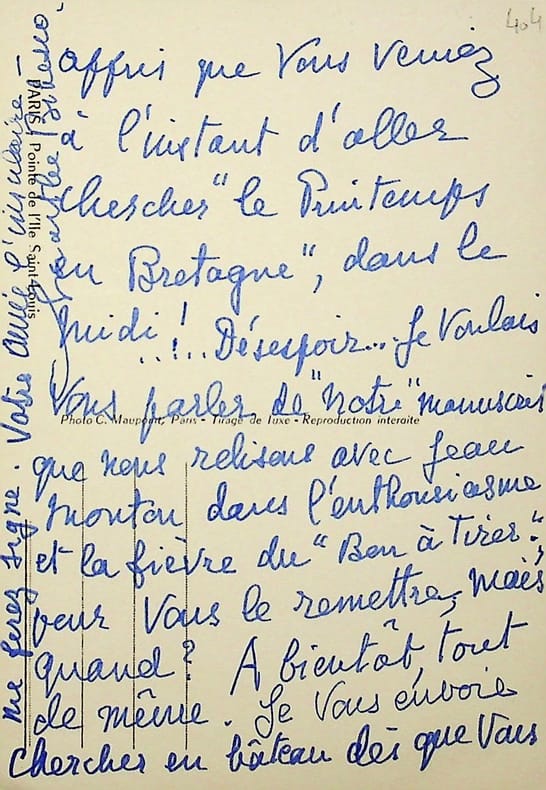 404
appris que Vous Veniez
à l'instant d'aller
chercher "le Printemps
en Bretagne", dans le
Midi! ..!.. Désespoir... Je Voulais
Vous parler de "notre" manuscrit
Photo C. Maupoint, Paris - Tirage de luxe - Reproduction interdite
que nous relisons avec Jean
Mouton dans l'enthousiasme
et la fièvre du "Bon à Tirer".
pour Vous le remettre, mais
quand? A bientôt, tout
de même. Je Vous envoie
chercher en bâteau dès que Vous
me ferez signe. Votre amie l'insulaire -
Marthe Bibesco.
PARIS - Pointe de l'Ile Saint-Louis